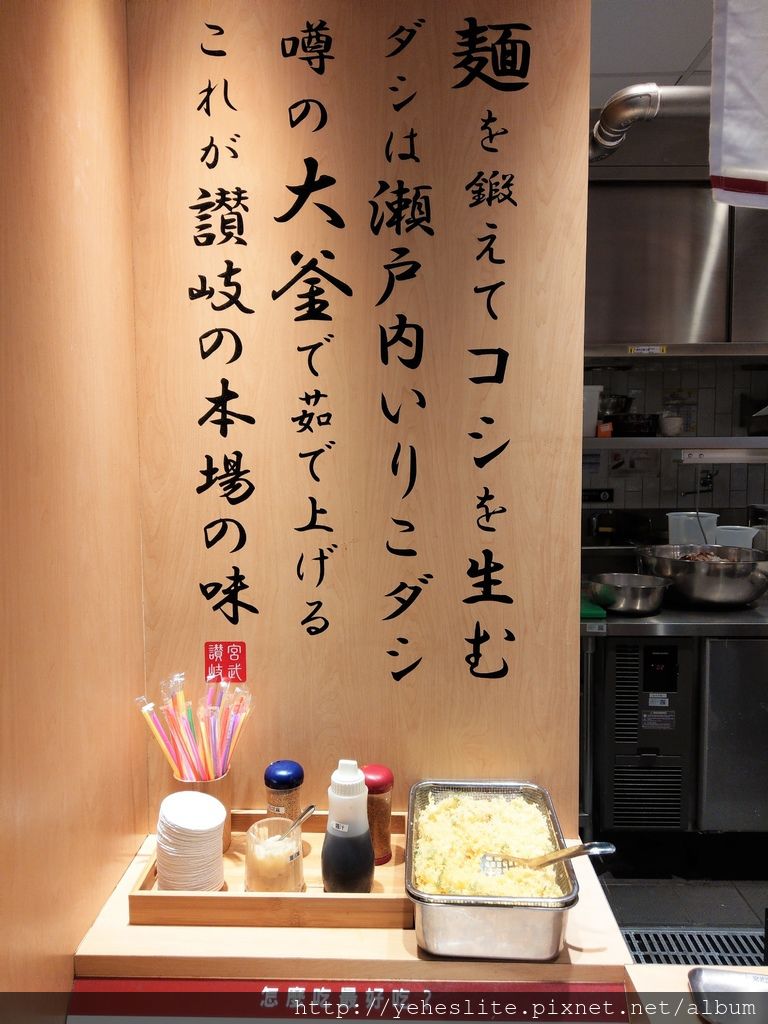 麺を鍛えてコシを生む
ダシは瀬戸内いりこダシ
噂の大釜で茹で上げる
これが讃岐の本場の味
宮武
讃岐
怎麼吃最好吃？
http://yeheslite.pixnet.net/album